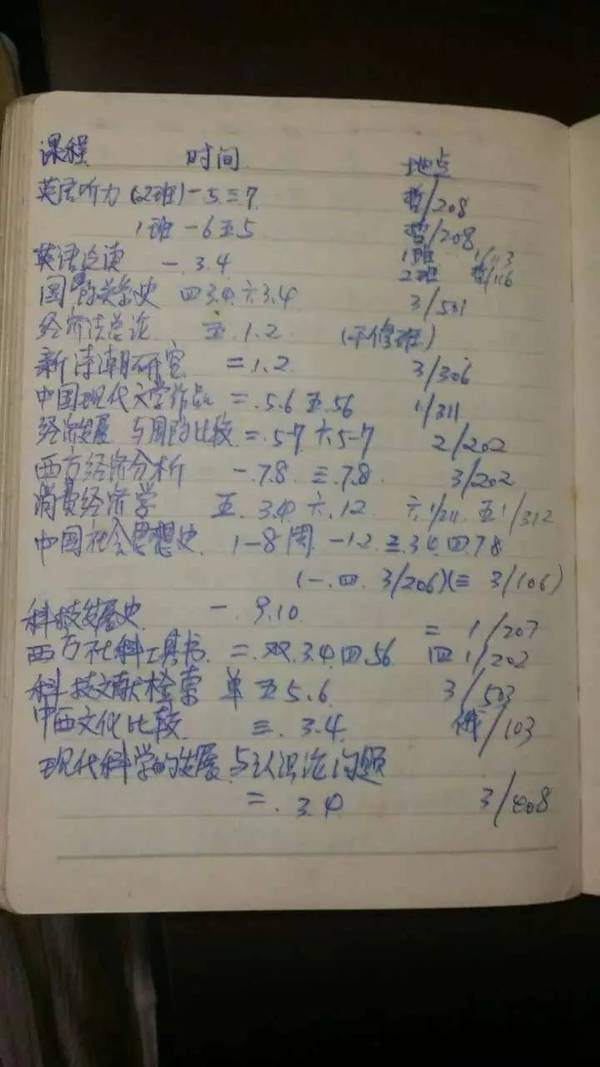 课程 时间 地点
英语听力 (2班) 一5三7 哲/208
1班 一6五5 哲/208
英语泛读 一 3.4 1班 1/113
2班 哲/116
国际关系史 四3.4六3.4 3/501
经济法总论 五 1.2 (干修班)
新诗潮研究 二1.2 3/306
中国现代文学作品 二.5.6五56 1/311
经济发展与国际比较 二.5-7六5-7 2/202
西方经济分析 一.7.8 三7.8 3/202
消费经济学 五.3.4六.12 六1/211 五1/312
中国社会思想史 1-8周 一12三34四78
(一.四.3/206)(三 3/106)
科技发展史 一 9.10
西方社科工具书 二双3.4四.56 二 1/207 四1/202
科技文献检索 单五5.6 3/503
中西文化比较 三.3.4. 俄/103
现代科学的发展与认识论问题
二.3.4 3/408